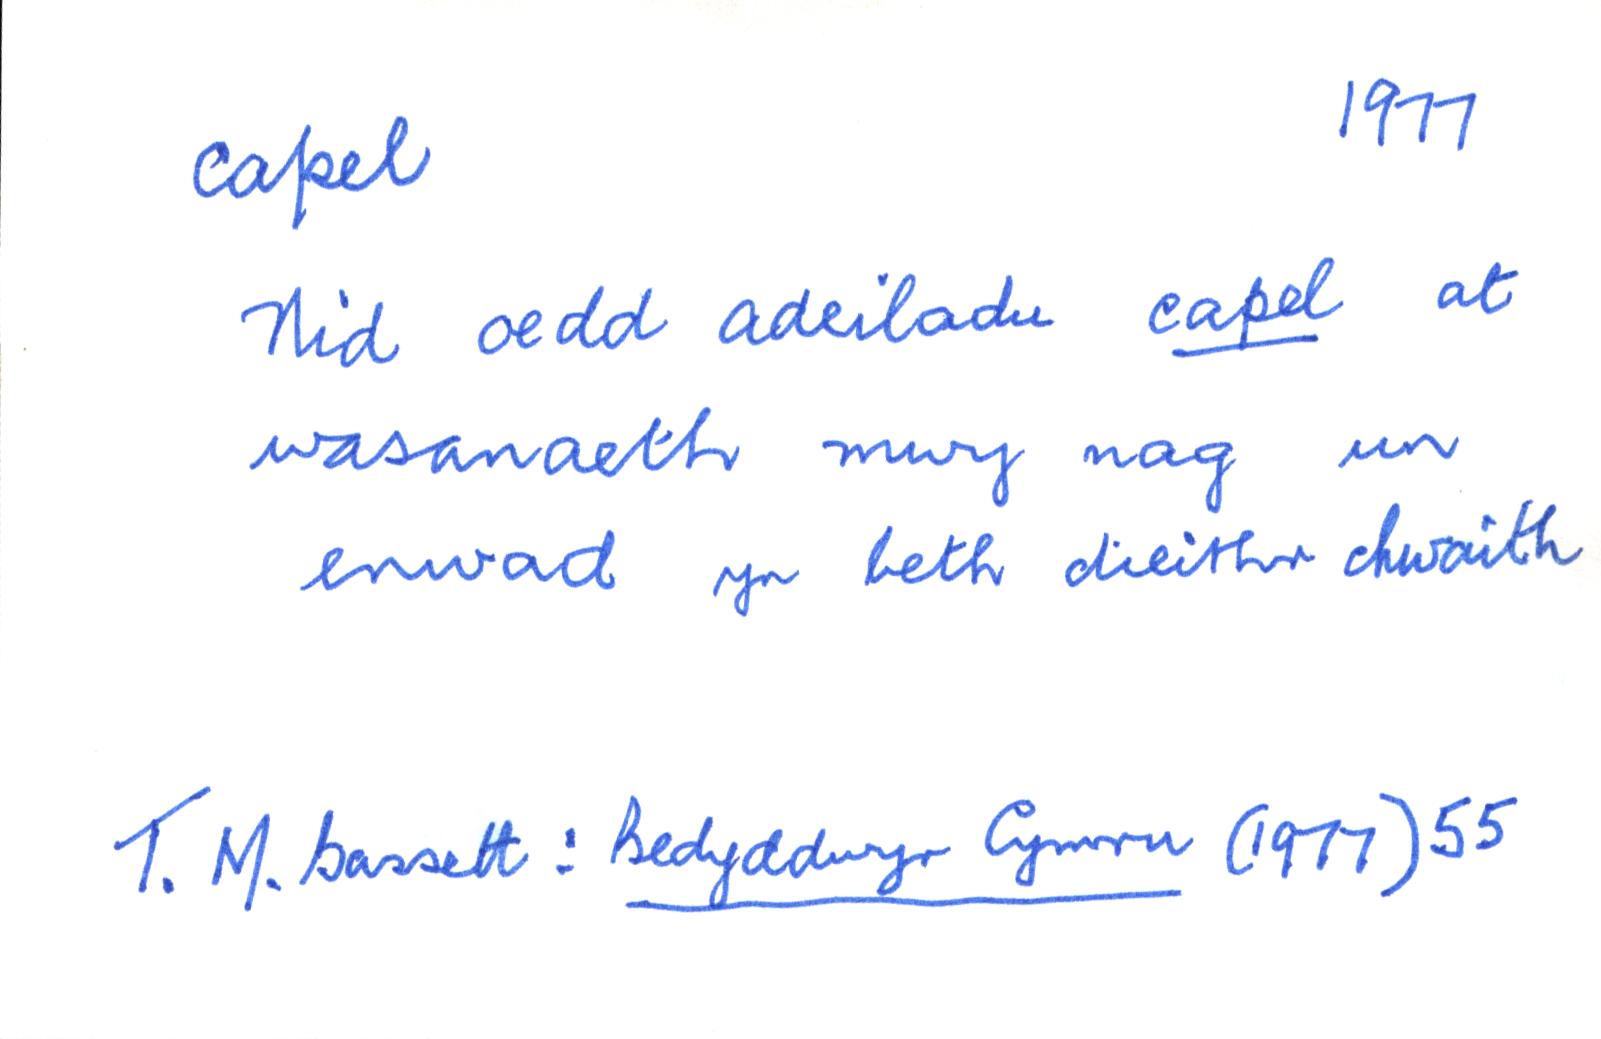 capel 1977
Nid oedd adeiladu capel at
wasanaeth mwy nag un
enwad yn beth dieithr chwaith
T. M. Bassett : Bedyddwyr Cymru (1977) 55